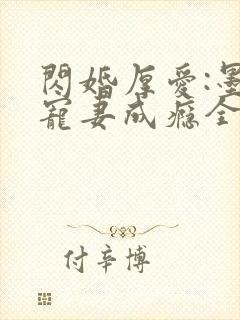 閃婚厚愛:墨
寵妻成癮全
付辛博